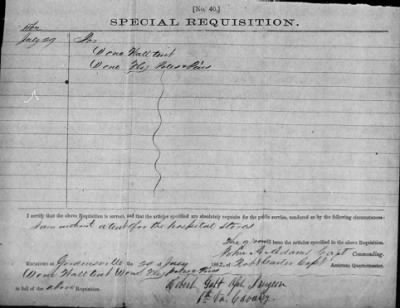 [No. 40.]
SPECIAL REQUISITION.
For
July 29 For
1 One Wall Tent
1 One Fly Poles & Pins
I certify that the above Requisition is correct, and that the articles specified are absolutely requisite for the public service, rendered so by the following circumstances:
I am without a tent for the hospital stores
will issue the articles specified in the above Requisition.
Capt Commanding.
Assistant Quartermaster.
RECEIVED at Gordonsville the 29 of July 1862 of Capt
One Wall Tent One Fly Poles & Pins
in full of the above Requisition
Robert Galt Asst Surgeon
6th Va Cavalry